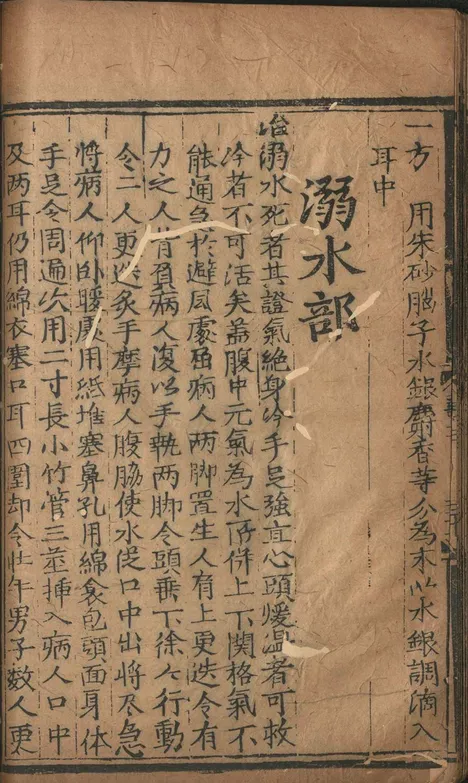 一方　用朱砂腦子水銀麝香等分為末以水銀調滴入
耳中
溺水部
治溺水死者其證氣絶身冷手足強直心頭煖温者可救
冷者不可活矣盖腹中元氣為水所併上下関格氣不
能通急於避風處屈病人两脚置生人肩上更迭令有
力之人背負病人復以手執两脚令頭垂下徐々行動
令二人更迭炙手摩病人腹脇使水從口中出将尽急
将病人仰卧暖處用紙堆塞鼻孔用綿衾包頭面身体
手足令周遍次用二寸長小竹管三莖揷入病人口中
及两耳仍用綿衣塞口耳四圍却令壮年男子数人更